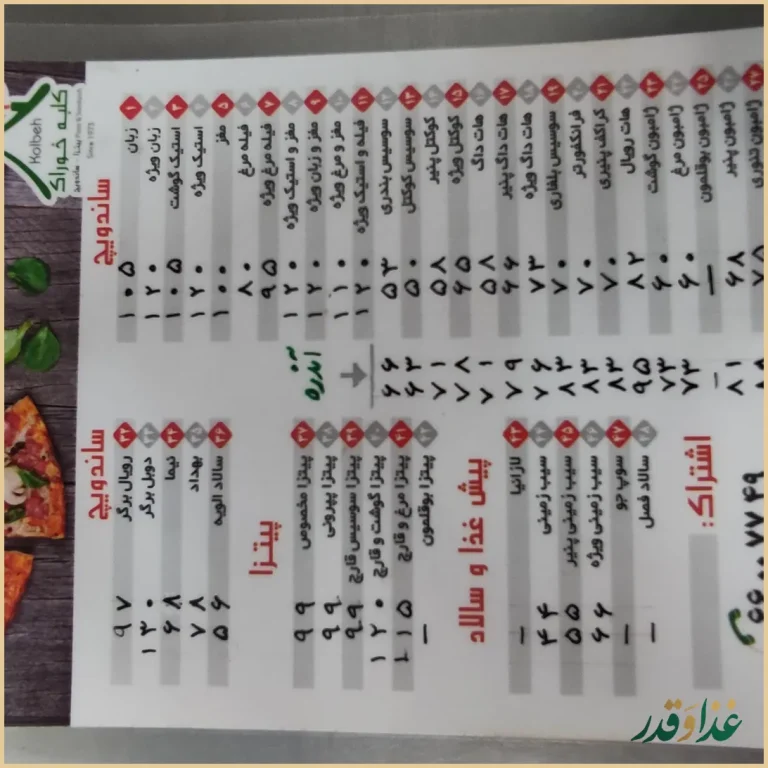 کلبه خوراک
Kolbeh
Since 1973
ساندویچ
۱ زبان ۱۰۵
۲ زبان ویژه ۱۲۰
۳ استیک گوشت ۱۰۵
۴ استیک ویژه ۱۲۰
۵ مغز ۱۰۰
۶ فیله مرغ ۸۰
۷ فیله مرغ ویژه ۹۵
۸ مغز و استیک ویژه ۱۲۰
۹ مغز و زبان ویژه ۱۲۰
۱۰ مغز و مرغ ویژه ۱۱۰
۱۱ فیله و استیک ویژه ۱۲۰
۱۲ سوسیس بندری ۵۳ ۶۶
۱۳ سوسیس کوکتل ۵۰ ۶۳
۱۴ کوکتل پنیر ۵۸ ۷۱
۱۵ کوکتل ویژه ۶۵ ۷۸
۱۶ هات داگ ۵۸ ۷۱
۱۷ هات داگ پنیر ۶۶ ۷۹
۱۸ هات داگ ویژه ۷۳ ۷۶
۱۹ سوسیس بلغاری ۷۰ ۸۳
۲۰ فرانکفورتر ۷۰ ۸۳
۲۱ کراکف پنیری ۷۰ ۸۳
۲۲ هات رویال ۸۲ ۹۵
۲۳ ژامبون گوشت ۶۰ ۷۳
۲۴ ژامبون مرغ ۶۰ ۷۳
۲۵ ژامبون بوقلمون — –
۲۶ ژامبون پنیر ۶۸ ۸۱
۲۷ ژامبون تنوری
ساندویچ
۳۲ رویال برگر ۹۷
۳۳ دوبل برگر ۱۳۰
۳۴ نیما ۶۸
۳۵ بهداد ۷۸
۳۶ سالاد الویه ۵۶
پیتزا
۳۷ پیتزا مخصوص ۹۹
۳۸ پیتزا پپرونی ۹۹
۳۹ پیتزا سوسیس قارچ ۹۹
۴۰ پیتزا گوشت و قارچ ۱۲۰
۴۱ پیتزا مرغ و قارچ ۱۱۵
۴۲ پیتزا بوقلمون —
پیش غذا و سالاد
۴۳ لازانیا —
۴۴ سیب زمینی ۴۴
۴۵ سیب زمینی پنیر ۵۵
۴۶ سیب زمینی ویژه ۶۶
۴۷ سوپ جو —
۴۸ سالاد فصل —
اشتراک:
۶۶۰۰۷۷۴۹
غذا و قدر